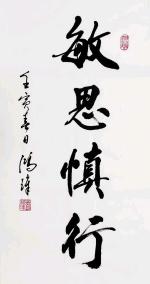 敏思慎行
壬寅春日鴻瑋